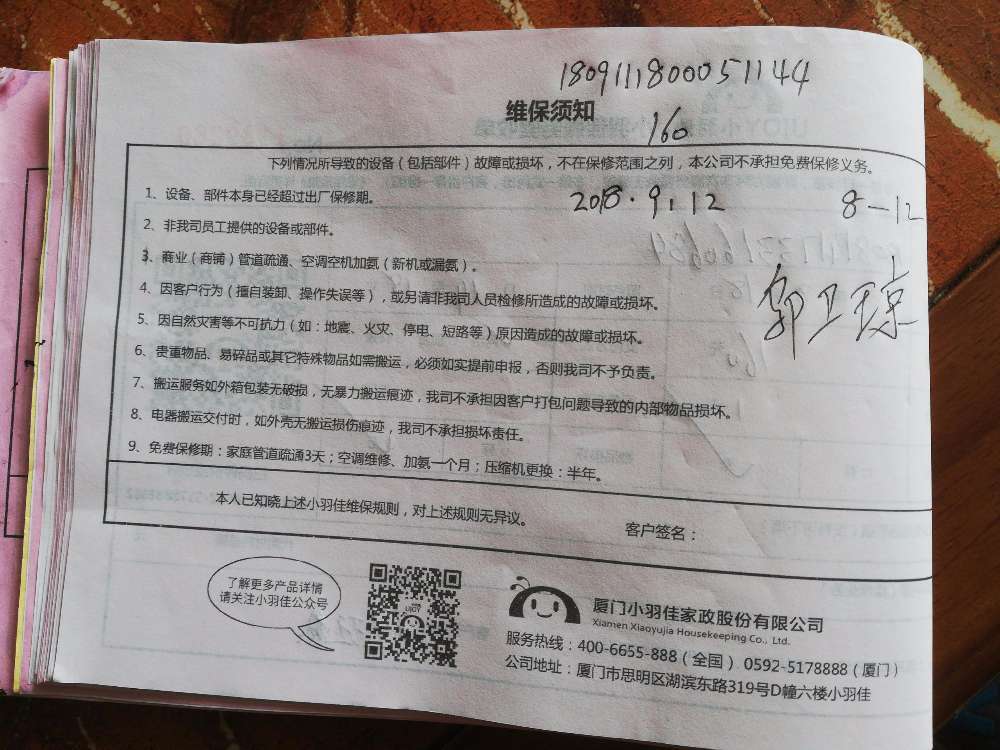 18091118000051144
维保须知
160
下列情况所导致的设备（包括部件）故障或损坏，不在保修范围之列，本公司不承担免费保修义务。
1、设备、部件本身已经超过出厂保修期。
2018.9.12
8-12
2、非我司员工提供的设备或部件。
3、商业（商铺）管道疏通、空调空机加氨（新机或漏氨）。
4、因客户行为（擅自装卸、操作失误等），或另请非我司人员检修所造成的故障或损坏。
郭卫琼
5、因自然灾害等不可抗力（如：地震、火灾、停电、短路等）原因造成的故障或损坏。
6、贵重物品、易碎品或其它特殊物品如需搬运，必须如实提前申报，否则我司不予负责。
7、搬运服务如外箱包装无破损，无暴力搬运痕迹，我司不承担因客户打包问题导致的内部物品损坏。
8、电器搬运交付时，如外壳无搬运损伤痕迹，我司不承担损坏责任。
9、免费保修期：家庭管道疏通3天；空调维修、加氨一个月；压缩机更换：半年。
本人已知晓上述小羽佳维保规则，对上述规则无异议。
客户签名：
了解更多产品详情
请关注小羽佳公众号
厦门小羽佳家政股份有限公司
Xiamen Xiaoyujia Housekeeping Co., Ltd.
服务热线：400-6655-888（全国） 0592-5178888（厦门）
公司地址：厦门市思明区湖滨东路319号D幢六楼小羽佳